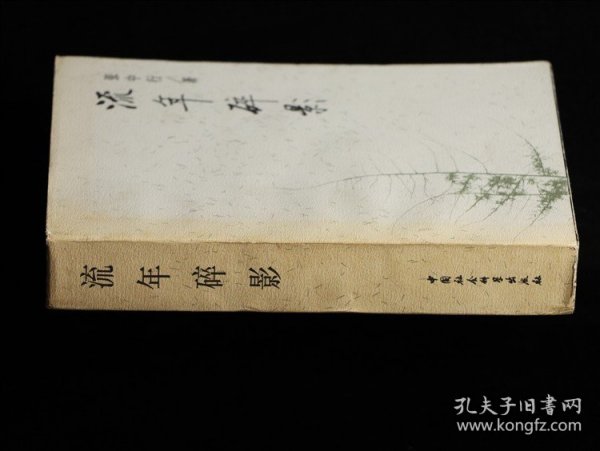 張中行/著
流年碎影
流年碎影
中国社会科学出版社
孔夫子旧书网
www.kongfz.com